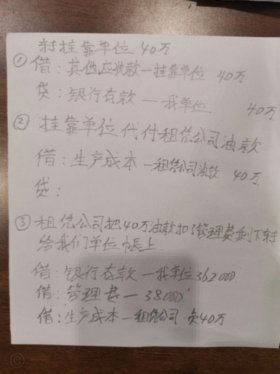 转挂靠单位 40万
① 借：其他应收款—挂靠单位 40万
贷：银行存款—我单位 40万
② 挂靠单位代付租赁公司油款
借：生产成本—租赁公司油款 40万
贷：
③ 租赁公司把40万油款扣管理费剩下转
给我们单位帐上
借：银行存款—我单位362000
借：管理费—38000
借：生产成本—租赁公司 负40万